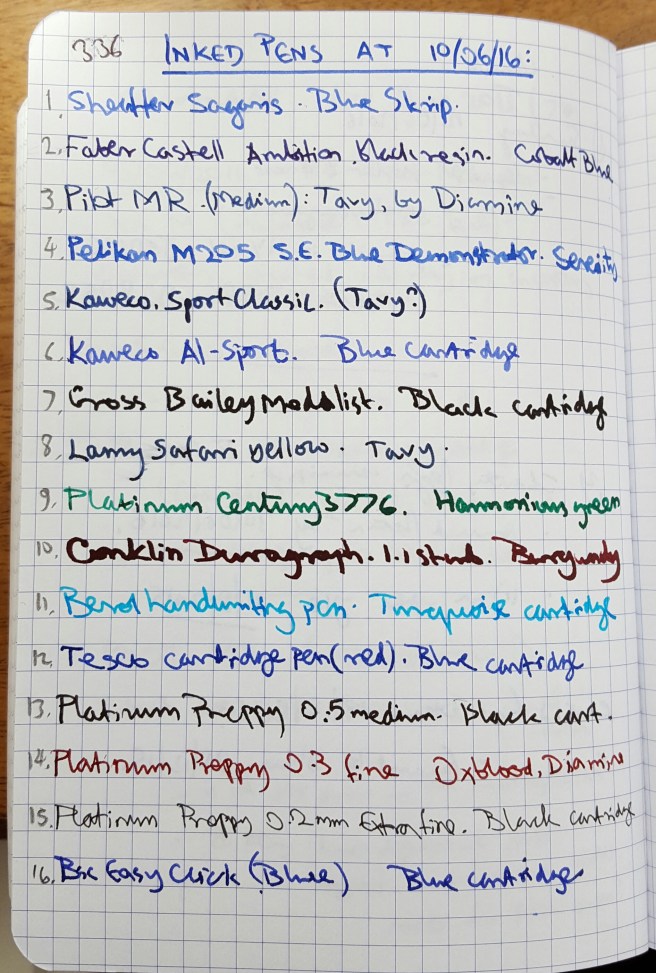 336 INKED PENS AT 10/06/16:
1. Sheaffer Sagaris. Blue Skrip.
2. Faber Castell Ambition, black resin. Cobalt Blue
3. Pilot MR. (Medium): Tavy, by Diamine
4. Pelikan M205 S.E. Blue Demonstrator. Serenity
5. Kaweco. Sport Classic. (Tavy?)
6. Kaweco Al-Sport. Blue cartridge
7. Cross Bailey Medalist. Black cartridge
8. Lamy Safari yellow. Tavy.
9. Platinum Century 3776. Harmonious green
10. Conklin Duragraph. 1.1 stub. Burgundy
11. Berol handwriting pen. Turquoise cartridge
12. Tesco cartridge pen (red). Blue cartridge
13. Platinum Preppy 0.5 medium. Black cart.
14. Platinum Preppy 0.3 fine Oxblood, Diamine
15. Platinum Preppy 0.2mm Extra fine. Black cartridge
16. Bic Easy Click (Blue) Blue cartridge